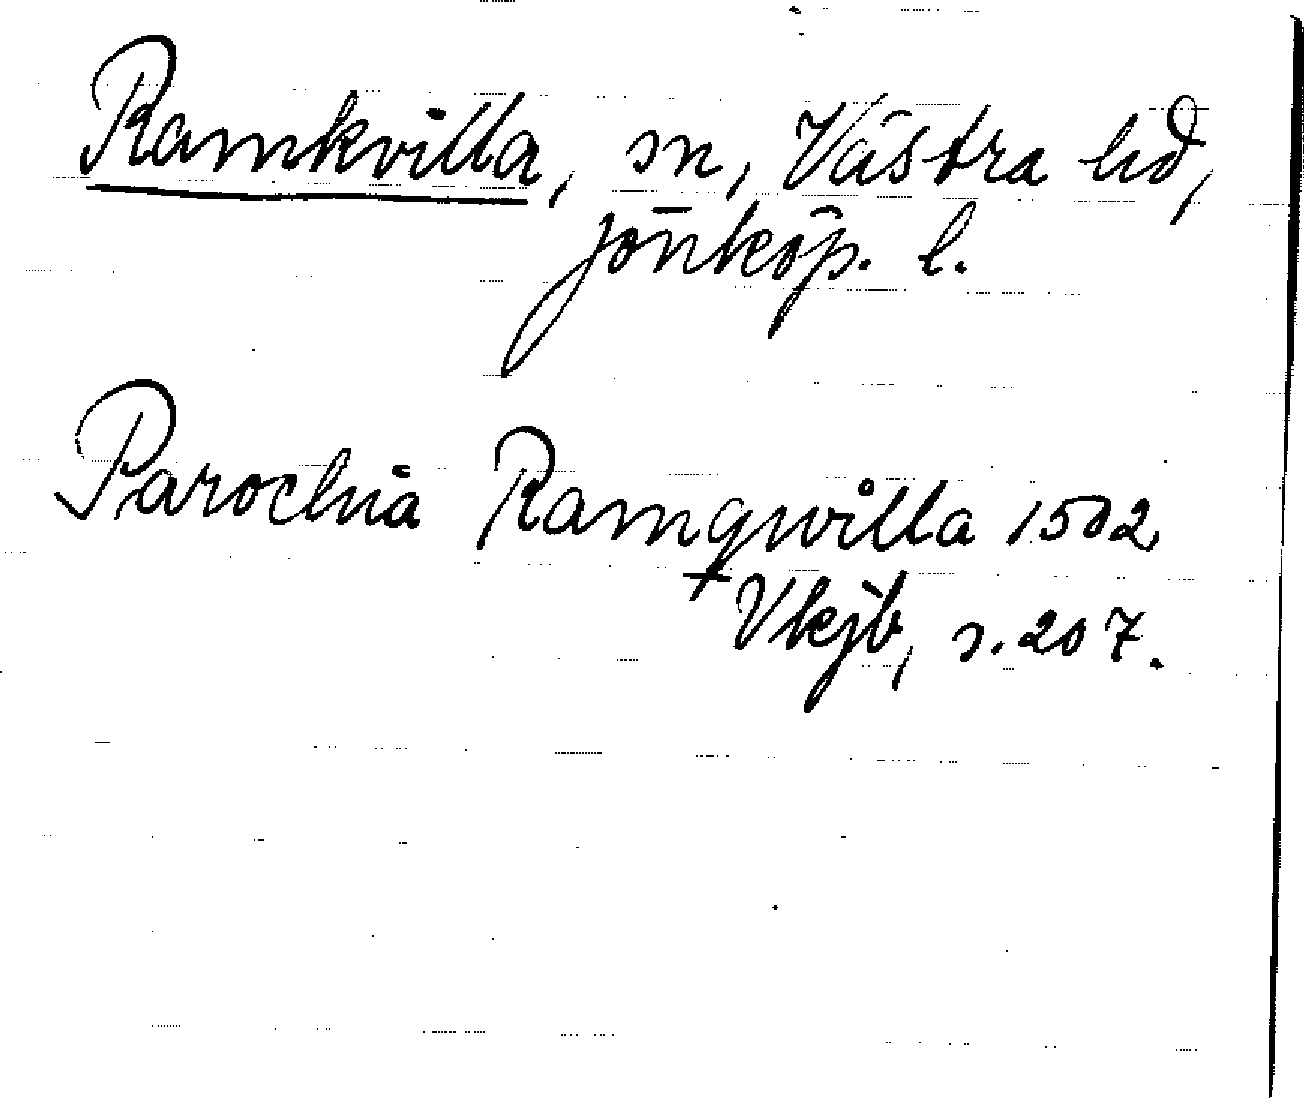 Ramkvilla, sn, Västra hd,
Jönköp. l.
Parochia Ramqwilla 1502
+ Vkjb, s. 207.